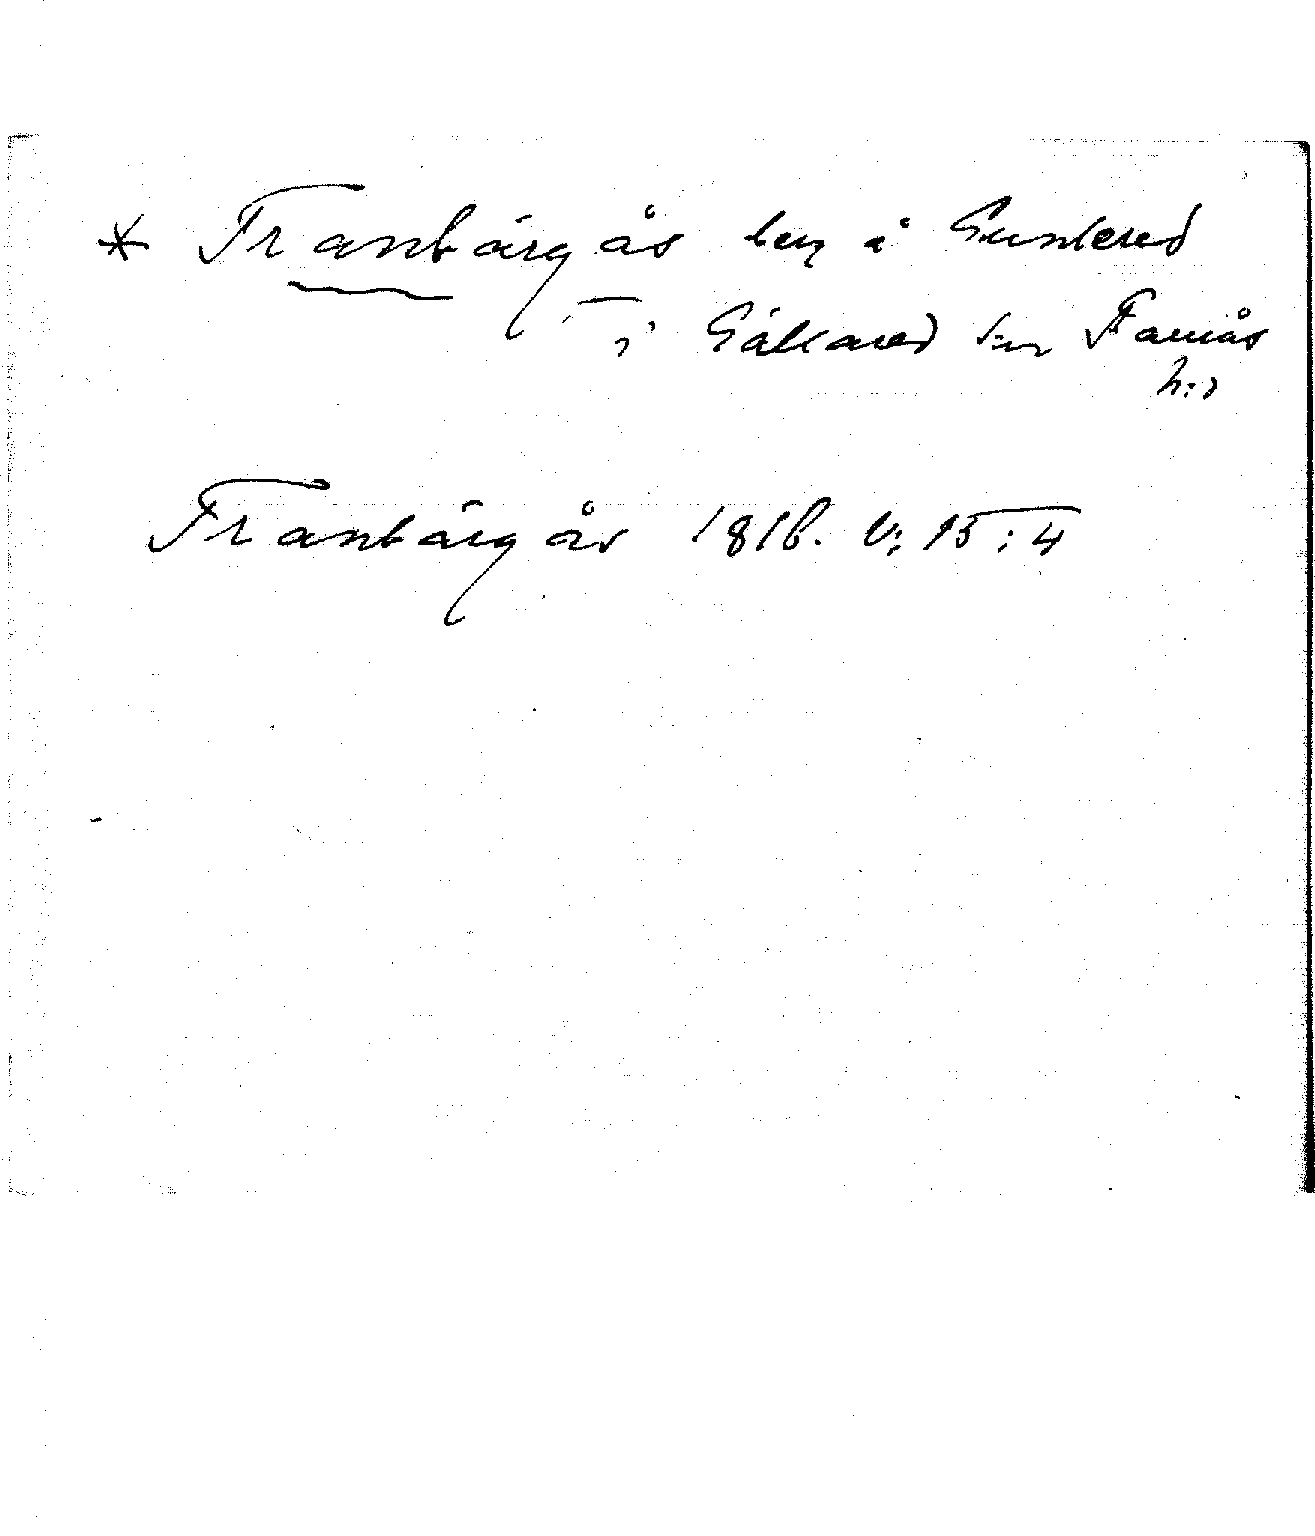 * Tranbärgås berg å Gunbered
i Gällared sn Faurås
h:d
Tranbärgås 1818. V: 15 : 4